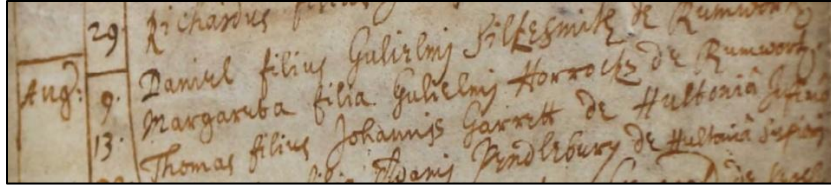 29. Richardus filius
Daniel filius Gulielmj Silkesmith de Rumworth
Aug: 9. Margareta filia Gulielmj Horrocks de Rumworth.
13. Thomas filius Johannis Garrett de Hultoniâ
Pendlebury de Hultoniâ